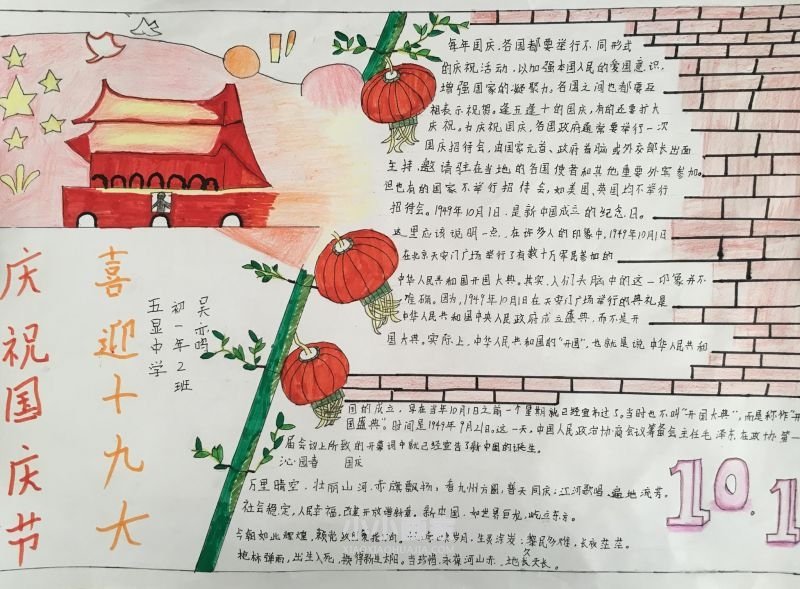 庆祝国庆节
喜迎十九大
五显中学
初一年2班
每年国庆,各国都要举行不同形式
的庆祝活动,以加强本国人民的爱国意识,
增强国家的凝聚力。各国之间也都要互
相表示祝贺。逢五逢十的国庆,有的还要扩大
庆祝。为庆祝国庆,各国政府通常要举行一次
国庆招待会,由国家元首、政府首脑或外交部长出面
主持,邀请驻在当地的各国使者和其他重要外宾参加。
但也有的国家不举行招待会,如美国、英国均不举行
招待会。1949年10月1日,是新中国成立的纪念日。
这里应该说明一点,在许多人的印象中,1949年10月1日
在北京天安门广场举行了有数十万军民参加的
中华人民共和国开国大典。其实,人们头脑中的这一印象并不
准确。因为,1949年10月1日在天安门广场举行的典礼是
中华人民共和国中央人民政府成立盛典,而不是开
国大典。实际上,中华人民共和国的“开国”,也就是说中华人民共和
国的成立,早在当年10月1日之前一个星期就已经宣布过了。当时也不叫“开国大典”,而是称作“开
国盛典”。时间是1949年9月21日。这一天,中国人民政治协商会议筹备会主任毛泽东在政协第一
届会议上所致的开幕词中就已经宣告了新中国的诞生。
沁园春 国庆
万里晴空,壮丽山河,赤旗飘物;看九州方圆,普天同庆;江河歌唱,遍地流芳。
社会稳定,人民幸福,改革开放谱新章。新中国,如世界巨龙,屹立东方。
今朝如此辉煌,岁月,生灵涂炭;黎民多难,长夜茫茫。
枪林弹雨,出生入死,换得新生太阳。当珍惜,永葆河山赤,地久天长。
10.1